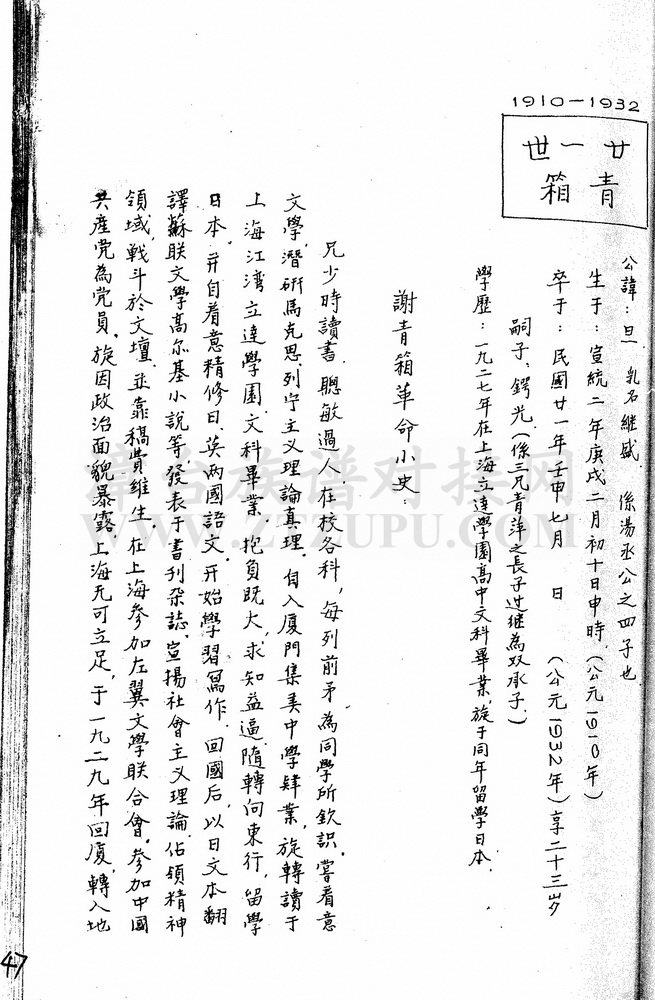 1910—1932
廿一世
青箱
公諱：旦 乳名継盛 係湯丞公之四子也
生于：宣統二年庚戌二月初十日申時（公元1910年）
卒于：民國廿一年壬申七月 日 （公元1932年）享二十三岁
嗣子：鍔光（係三兄青萍之長子过继為双承子.）
學歷：一九二七年在上海立達學園高中文科畢業，旋于同年留學日本.
謝青箱革命小史：
兄少時讀書，聰敏過人，在校各科，每列前矛，為同學所欽識.嘗着意
文學，潛研馬克思、列宁主义理論真理.自入厦門集美中學肄業，旋轉讀于
上海江湾立達學園文科畢業，抱負既大，求知益逼，隨轉向東行，留學
日本，并自着意精修日、英两國語文，开始學習寫作.回國后，以日文本翻
譯蘇联文學高尔基小說等，發表于書刊杂誌.宣揚社會主义理論，佔領精神
領域，戰斗於文壇，並靠稿費维生，在上海参加左翼文學联合會，参加中國
共產党為党員，旋因政治面貌暴露，上海无可立足，于一九二九年回厦，轉入地
47
章台族谱对接网
WWW.ZTZUPU.COM